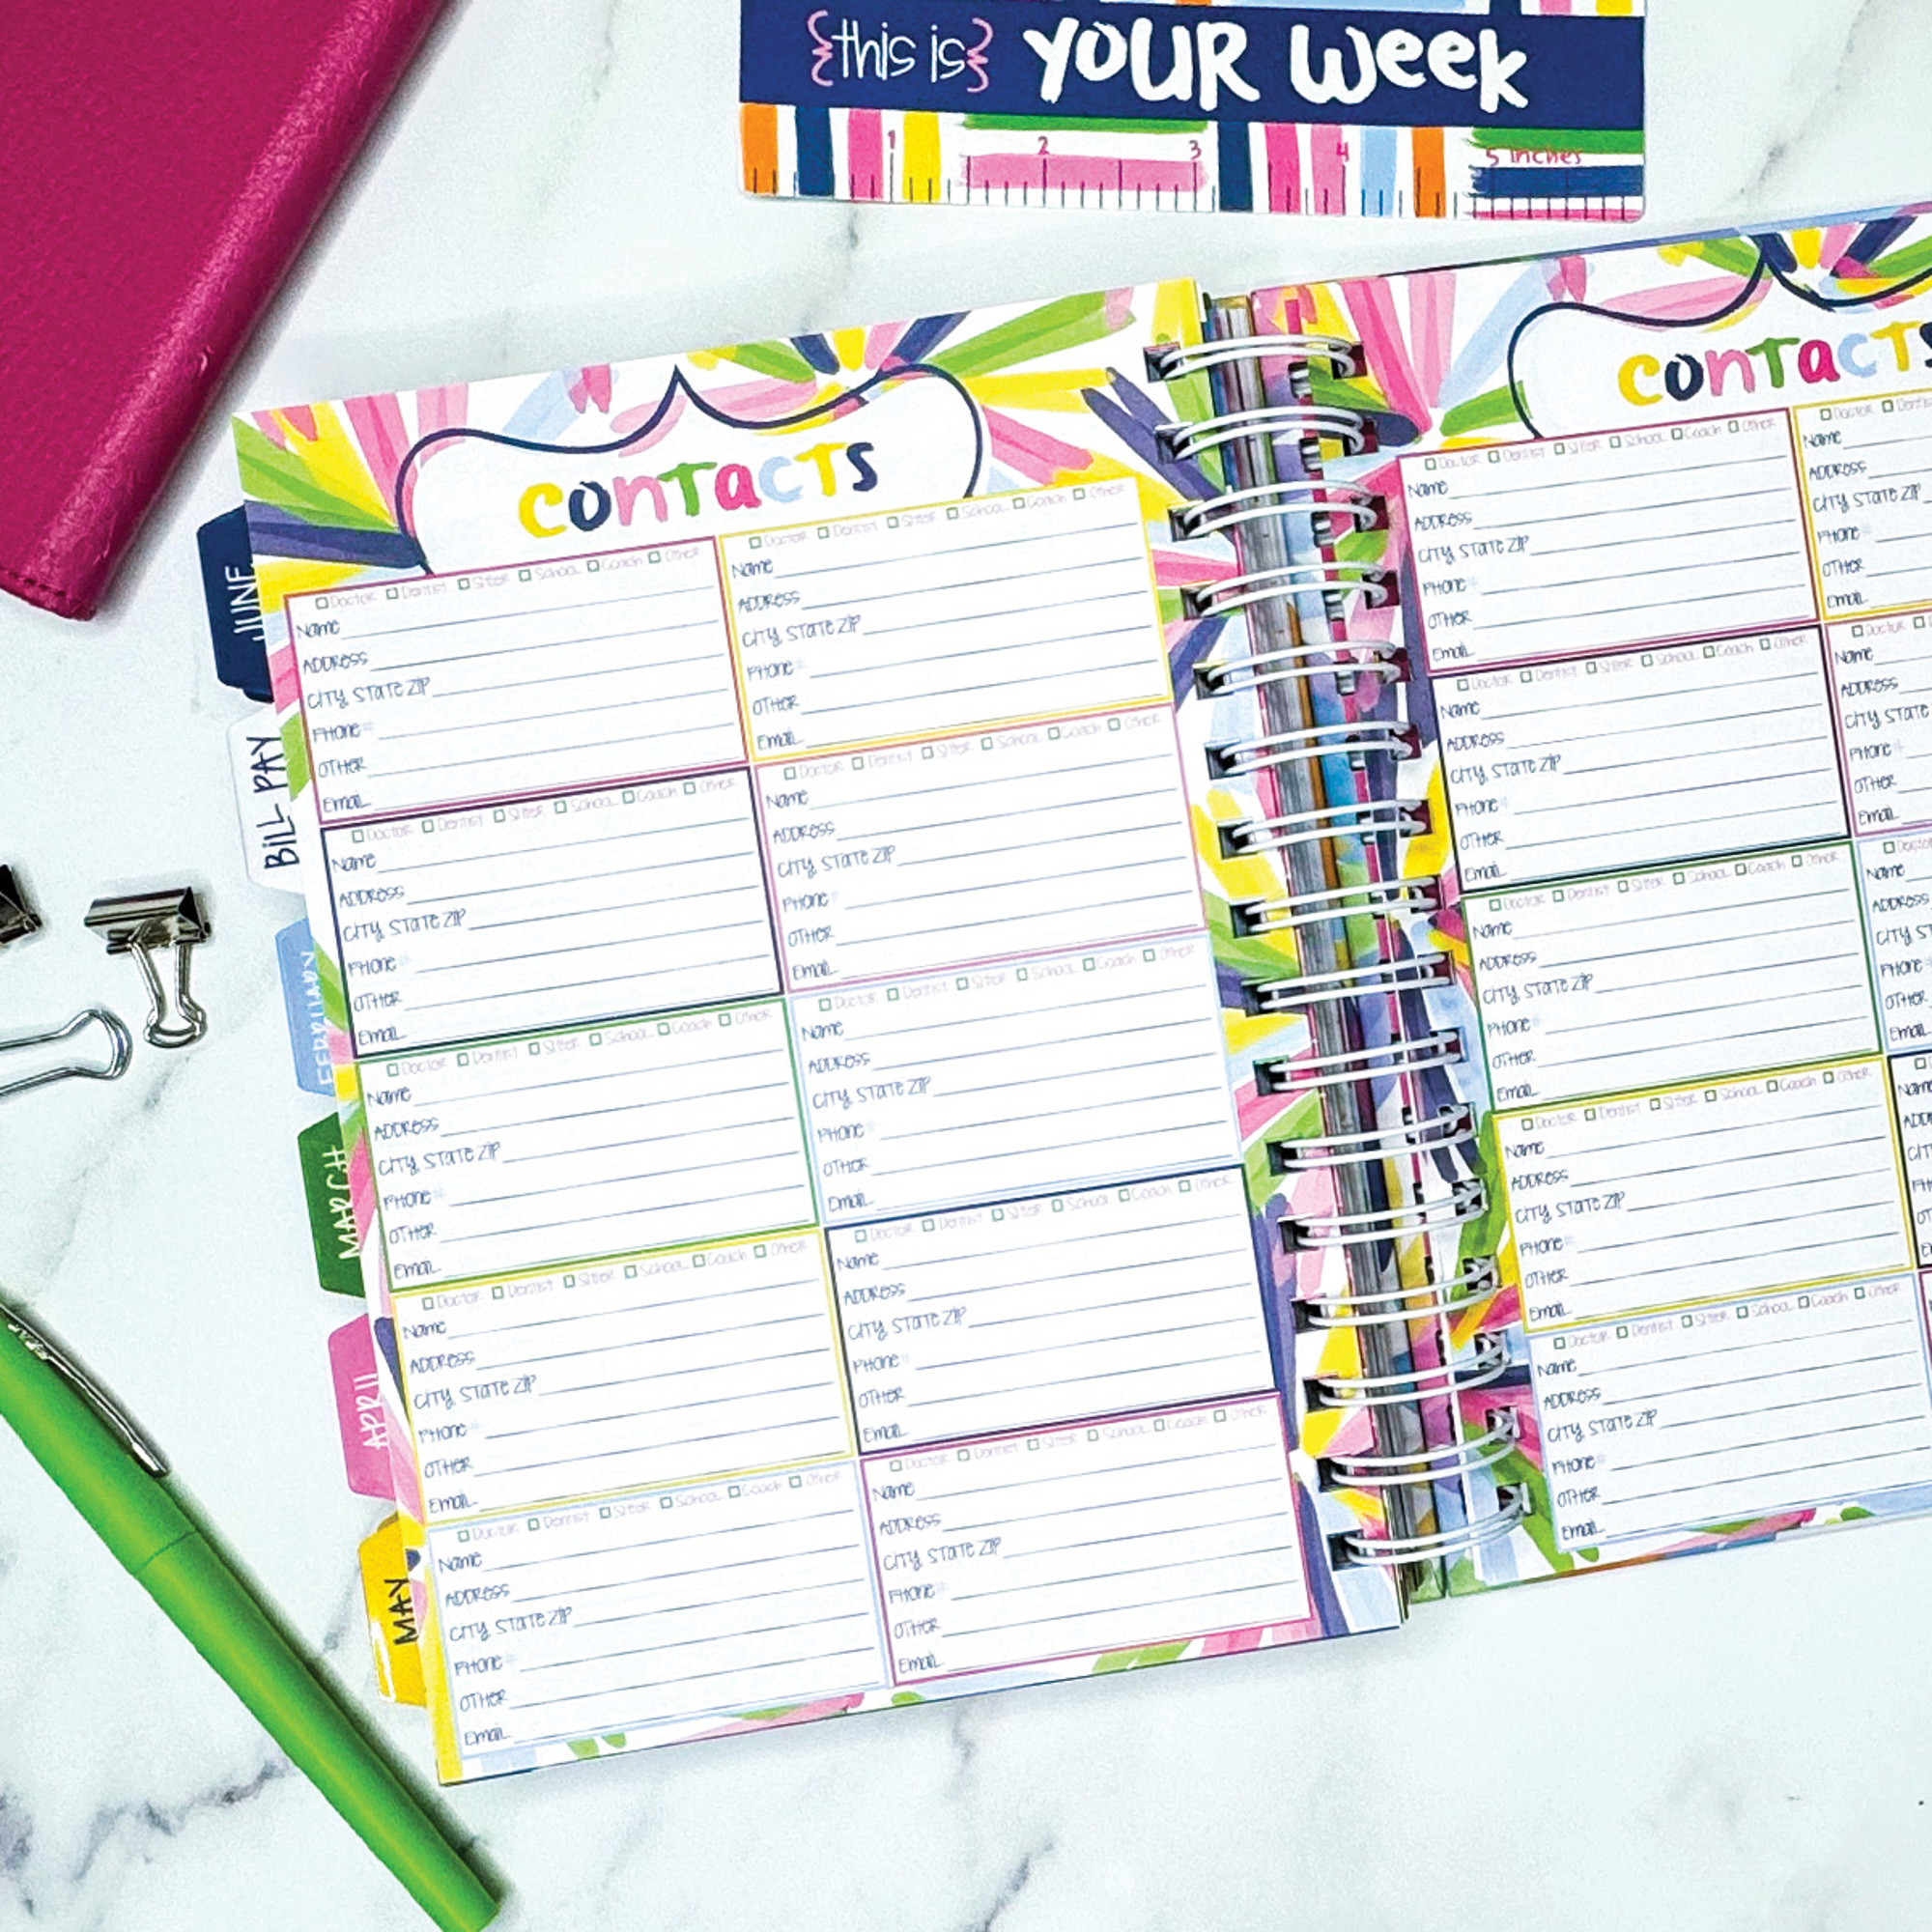 {this is} YOUR Week
1 2 3 4 5 inches
JUNE
BILL PAY
FEBRUARY
MARCH
APRIL
MAY
contacts
Doctor Dentist Sitter School Coach Other
Name
ADDRESS
CITY, STATE ZIP
PHONE #
OTHER
Email
Doctor Dentist Sitter School Coach Other
Name
ADDRESS
CITY, STATE ZIP
PHONE #
OTHER
Email
Doctor Dentist Sitter School Coach Other
Name
ADDRESS
CITY, STATE ZIP
PHONE #
OTHER
Email
Doctor Dentist Sitter School Coach Other
Name
ADDRESS
CITY, STATE ZIP
PHONE #
OTHER
Email
Doctor Dentist Sitter School Coach Other
Name
ADDRESS
CITY, STATE ZIP
PHONE #
OTHER
Email
Doctor Dentist Sitter School Coach Other
Name
ADDRESS
CITY, STATE ZIP
PHONE #
OTHER
Email
Doctor Dentist Sitter School Coach Other
Name
ADDRESS
CITY, STATE ZIP
PHONE #
OTHER
Email
Doctor Dentist Sitter School Coach Other
Name
ADDRESS
CITY, STATE ZIP
PHONE #
OTHER
Email
Doctor Dentist Sitter School Coach Other
Name
ADDRESS
CITY, STATE ZIP
PHONE #
OTHER
Email
Doctor Dentist Sitter School Coach Other
Name
ADDRESS
CITY, STATE ZIP
PHONE #
OTHER
Email
contacts
Doctor Dentist Sitter School Coach Other
Name
ADDRESS
CITY, STATE ZIP
PHONE #
OTHER
Email
Doctor Dentist
Name
ADDRESS
CITY, STATE ZIP
PHONE #
OTHER
Email
Doctor Dentist Sitter School Coach Other
Name
ADDRESS
CITY, STATE ZIP
PHONE #
OTHER
Email
Doctor
Name
ADDRESS
CITY, STATE
PHONE #
OTHER
Email
Doctor Dentist Sitter School Coach Other
Name
ADDRESS
CITY, STATE ZIP
PHONE #
OTHER
Email
Doctor
Name
ADDRESS
CITY, ST
PHONE #
OTHER
Email
Doctor Dentist Sitter School Coach Other
Name
ADDRESS
CITY, STATE ZIP
PHONE #
OTHER
Email
Name
Doctor Dentist Sitter School Coach Other
Name
ADDRESS
CITY, STATE ZIP
PHONE #
OTHER
Email